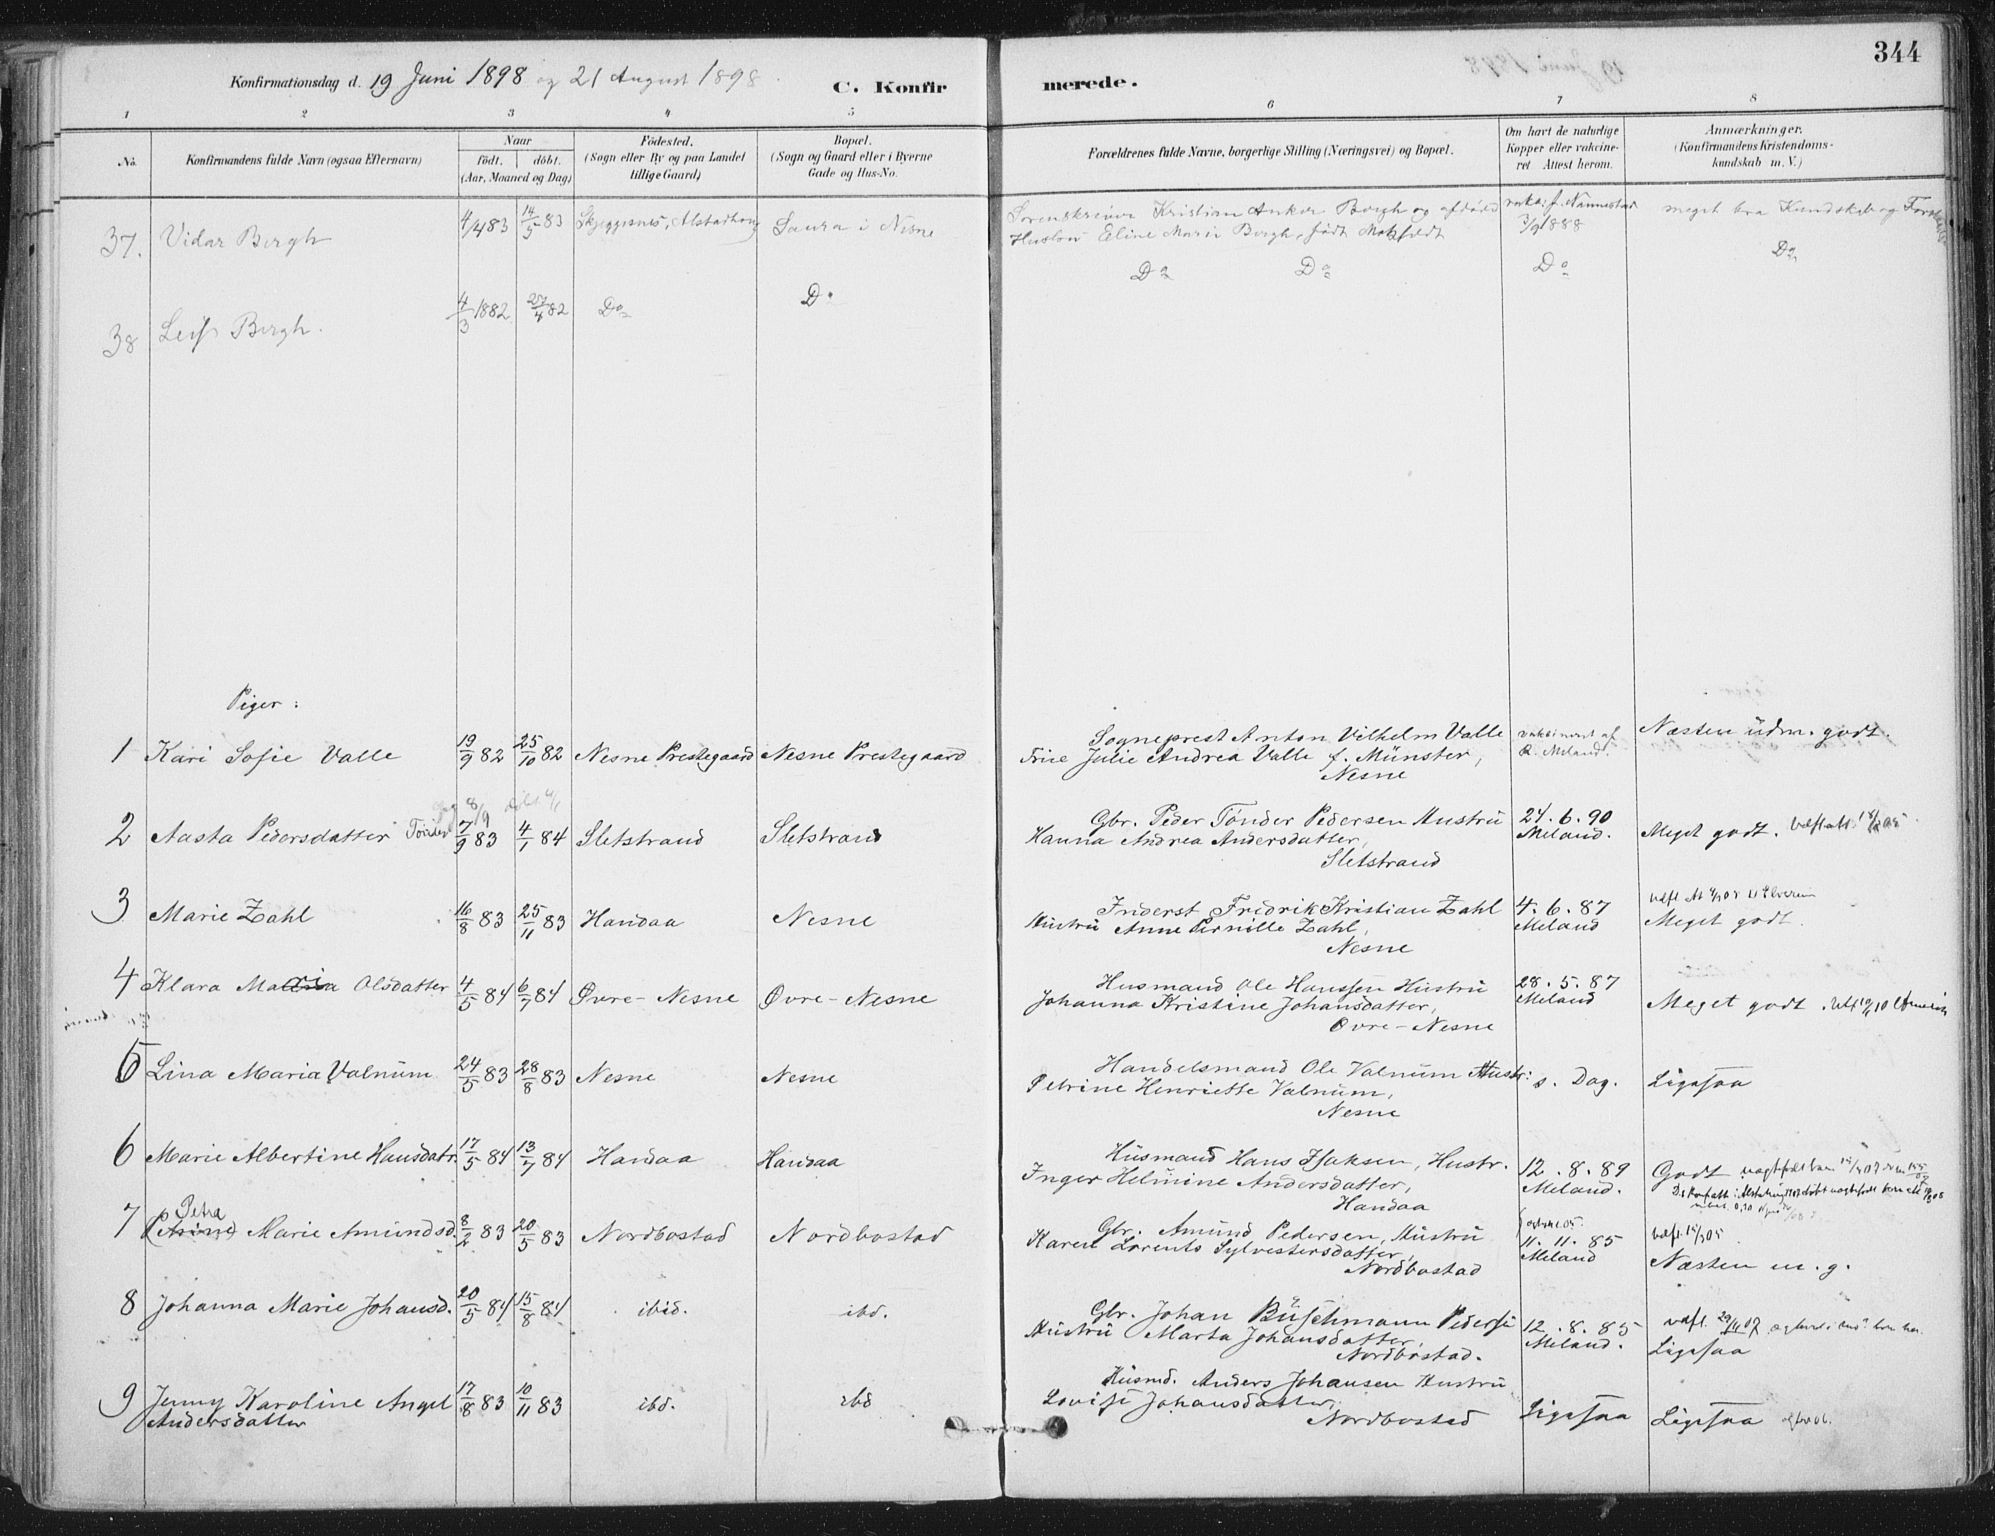 344
Konfirmationsdag d. 19 Juni 1898 og 21 August 1898
C. Konfirmerede.
1 2 3 4 5 6 7 8
No. Konfirmandens fulde Navn (ogsaa Efternavn)
Naar
födt. döbt.
(Aar, Maaned og Dag)
Födested.
(Sogn eller By og paa Landet
tillige Gaard)
Bopæl.
(Sogn og Gaard eller i Byerne
Gade og Hus-No.
Forældrenes fulde Navne, borgerlige Stilling (Næringsvei) og Bopæl.
Om havt de naturlige
Kopper eller vakcine-
ret Attest herom.
Anmærkninger.
(Konfirmandens Kristendoms-
kundskab m. V.)
37. Vidar Bergh 4/4 83 14/5 83 Skjeggesnes, Alstadhoug Saura i Nesne
Sorenskriver Kristian Anker Bergh og afdøde
Hustru Eline Marie Bergh, født
vakc. f. Nannestad
3/9 1888
meget bra Kundskab og
38 Leif Bergh. 4/3 1882 27/4 82 Do Do Do Do Do Do
Piger:
1 Kari Sofie Valle 19/9 82 25/10 82 Nesne Prestegaard Nesne Prestegaard
Sogneprest Anton Vilhelm Valle
Frue Julie Andrea Valle f. Münster,
Nesne
vaksineret af
Meland.
Næsten udm. godt.
2 Aasta Pedersdatter Tønder 7/9 83 4/1 84 Sletstrand Sletstrand
8/9 døbt 4/1
Gbr. Peder Tønder Pedersen Hustru
Hanna Andrea Andersdatter,
Sletstrand
24.6.90
Meland.
Meget godt.
3 Marie Zahl 16/8 83 25/11 83 Handaa Nesne
Inderst Fredrik Kristian Zahl
Hustru Anne Pernille Zahl,
Nesne
4.6.87
Meland
Meget godt.
4 Klara Maria Olsdatter 4/5 84 6/7 84 Øvre-Nesne Øvre-Nesne
Husmand Ole Hanssen Hustru
Johanna Kristine Johansdatter,
Øvre-Nesne
28.5.87
Meland
Meget godt.
5 Lina Maria Valnum 24/5 83 28/8 83 Nesne Nesne
Handelsmand Ole Valnum Hustr:
Petrine Henriette Valnum,
Nesne
s. Dag.
Ligesaa
6 Marie Albertine Hansdatr. 17/5 84 13/7 84 Handaa Handaa
Husmand Hans Isaksen, Hustr.
Inger Helmine Andersdatter,
Handaa
12.8.89
Meland.
Godt
7 Petra
(Petrine) Marie Amundsd. 8/2 83 20/5 83 Nordbostad Nordbostad
Gbr. Amund Pedersen, Hustru
Karen Lorents Sylvestersdatter,
Nordbostad
11.11.85
Meland
Næsten m.g.
8 Johanna Marie Johansd. 20/5 84 15/8 84 ibid. ibd.
Gbr. Johan Büschmann Pedersen
Hustru Marta Johansdatter,
Nordbostad.
12.8.85
Meland.
Ligesaa
9 Jenny Karoline Angel 17/8 83 10/11 83 ibd. ibd
Andersdatter
Husmd. Anders Johansen Hustru
Lovise Johansdatter,
Nordbostad
Ligesaa
Ligesaa